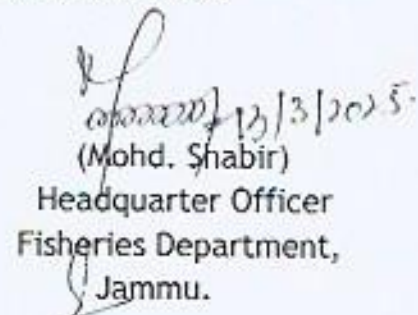 13/3/2025.
(Mohd. Shabir)
Headquarter Officer
Fisheries Department,
Jammu.